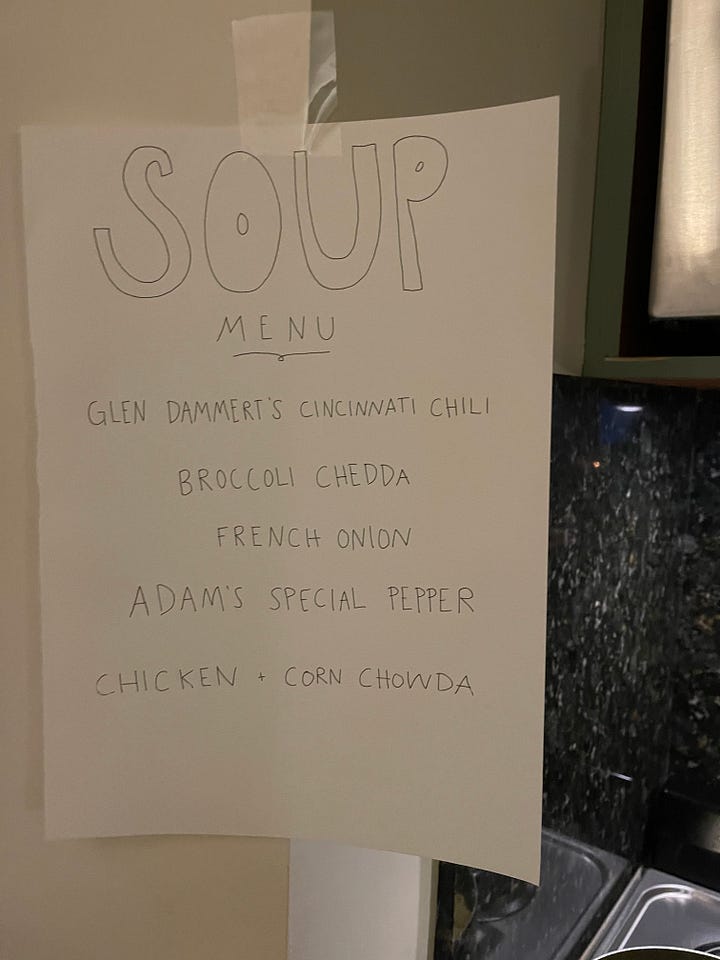 SOUP
MENU
GLEN DAMMERT'S CINCINNATI CHILI
BROCCOLI CHEDDA
FRENCH ONION
ADAM'S SPECIAL PEPPER
CHICKEN + CORN CHOWDA